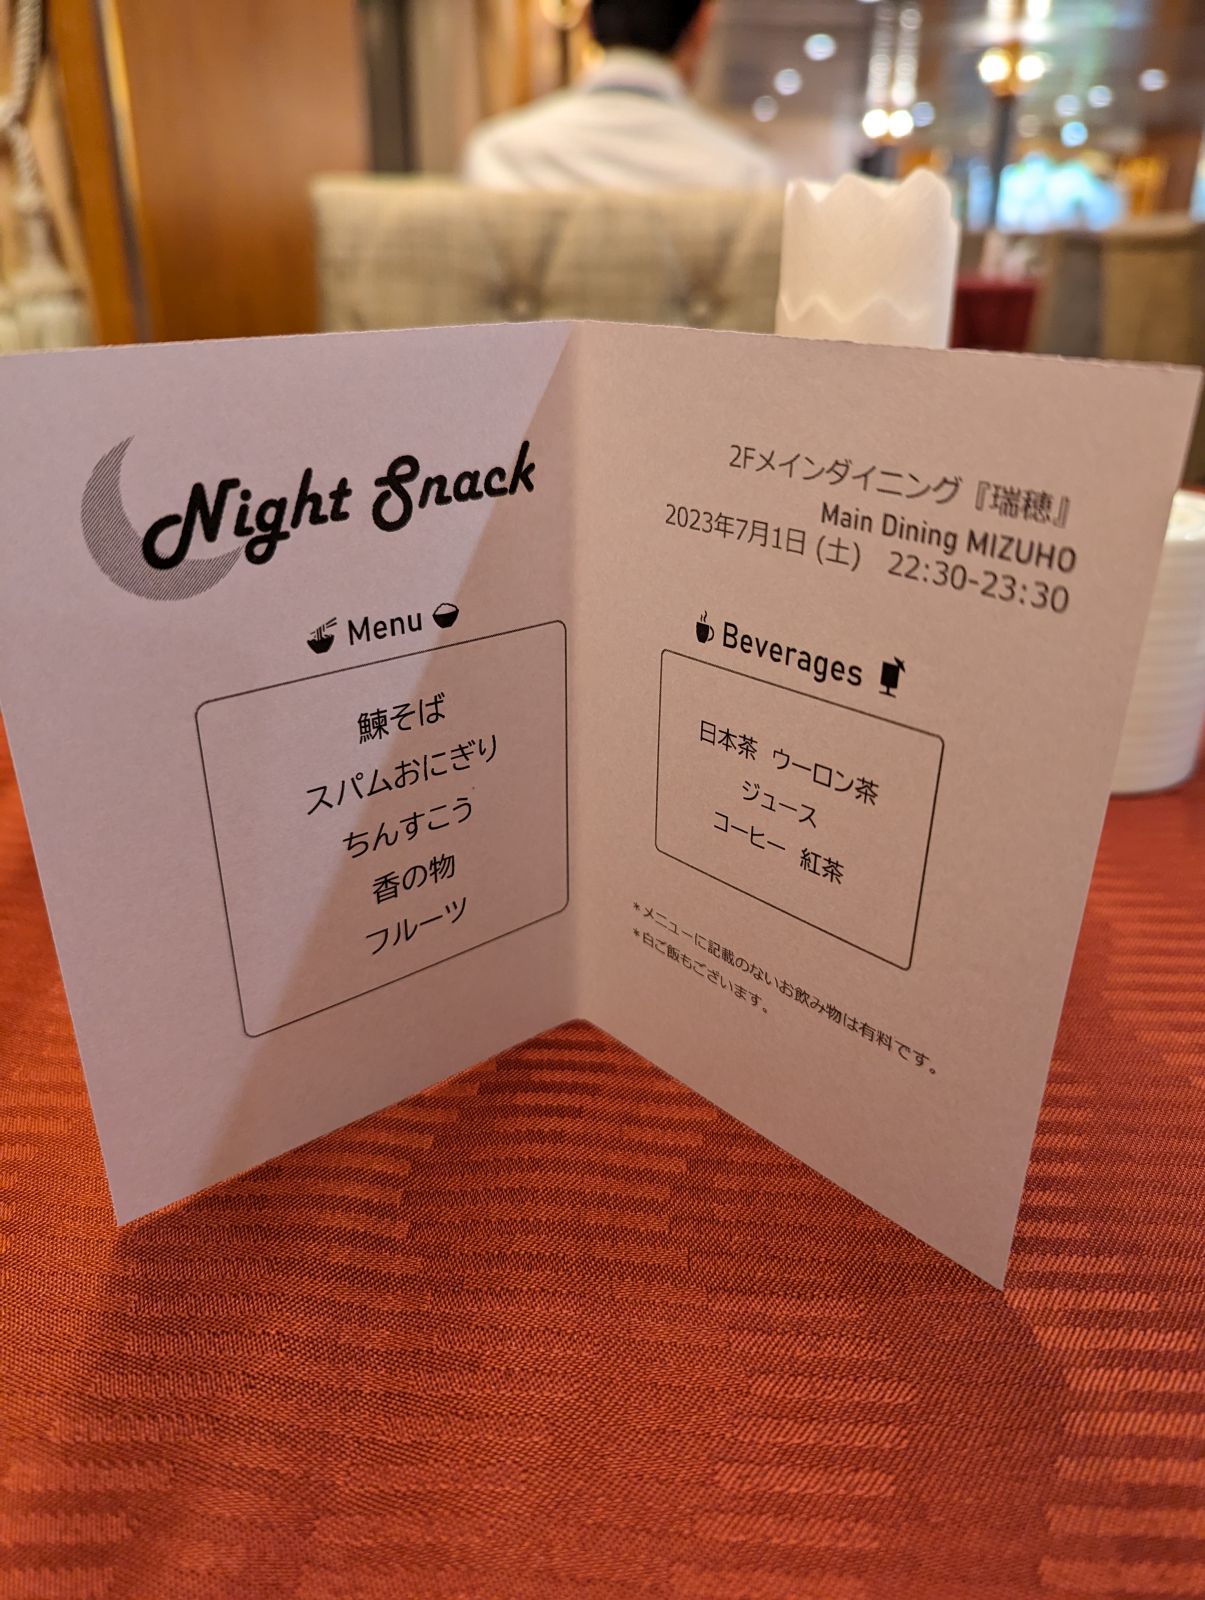 Night Snack
Menu
鰊そば
スパムおにぎり
ちんすこう
香の物
フルーツ
2Fメインダイニング『瑞穂』
Main Dining MIZUHO
2023年7月1日 (土) 22:30-23:30
Beverages
日本茶 ウーロン茶
ジュース
コーヒー 紅茶
*メニューに記載のないお飲み物は有料です。
*白ご飯もございます。